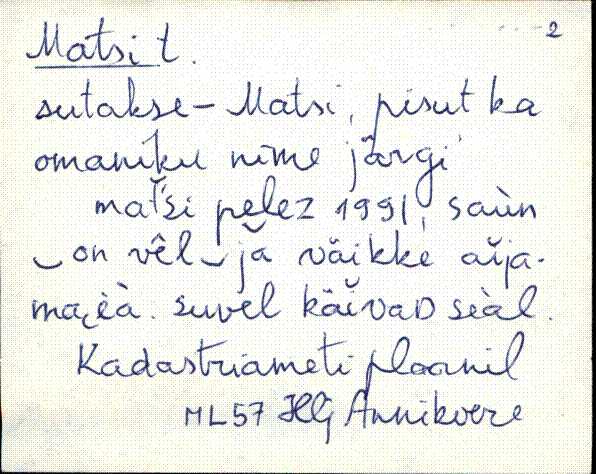 2
Matsi t.
sutakse - Matsi, pisut ka
omaniku nime järgi
matśi pelez 1991, saùn
on vêl jà väikke aĭja-
maɛèà. suvel käĭvaD seàl.
Kadastriameti plaanil
ML57 HG Annikvere